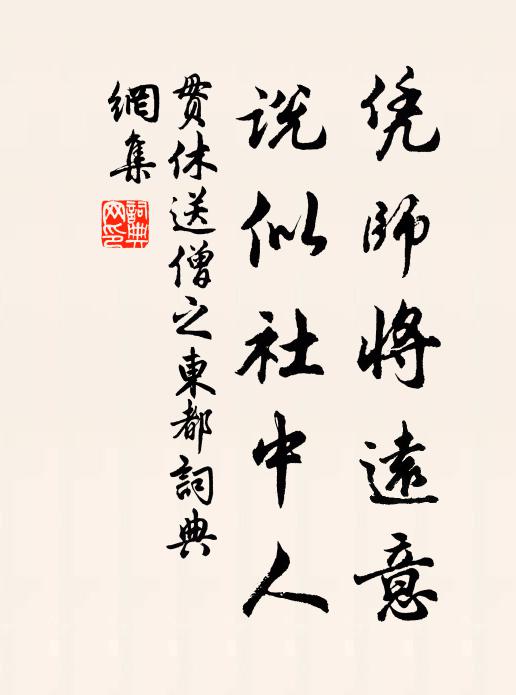 凭師將遠意
說似社中人
貫休送僧之東都詞典
網集
詞典網印